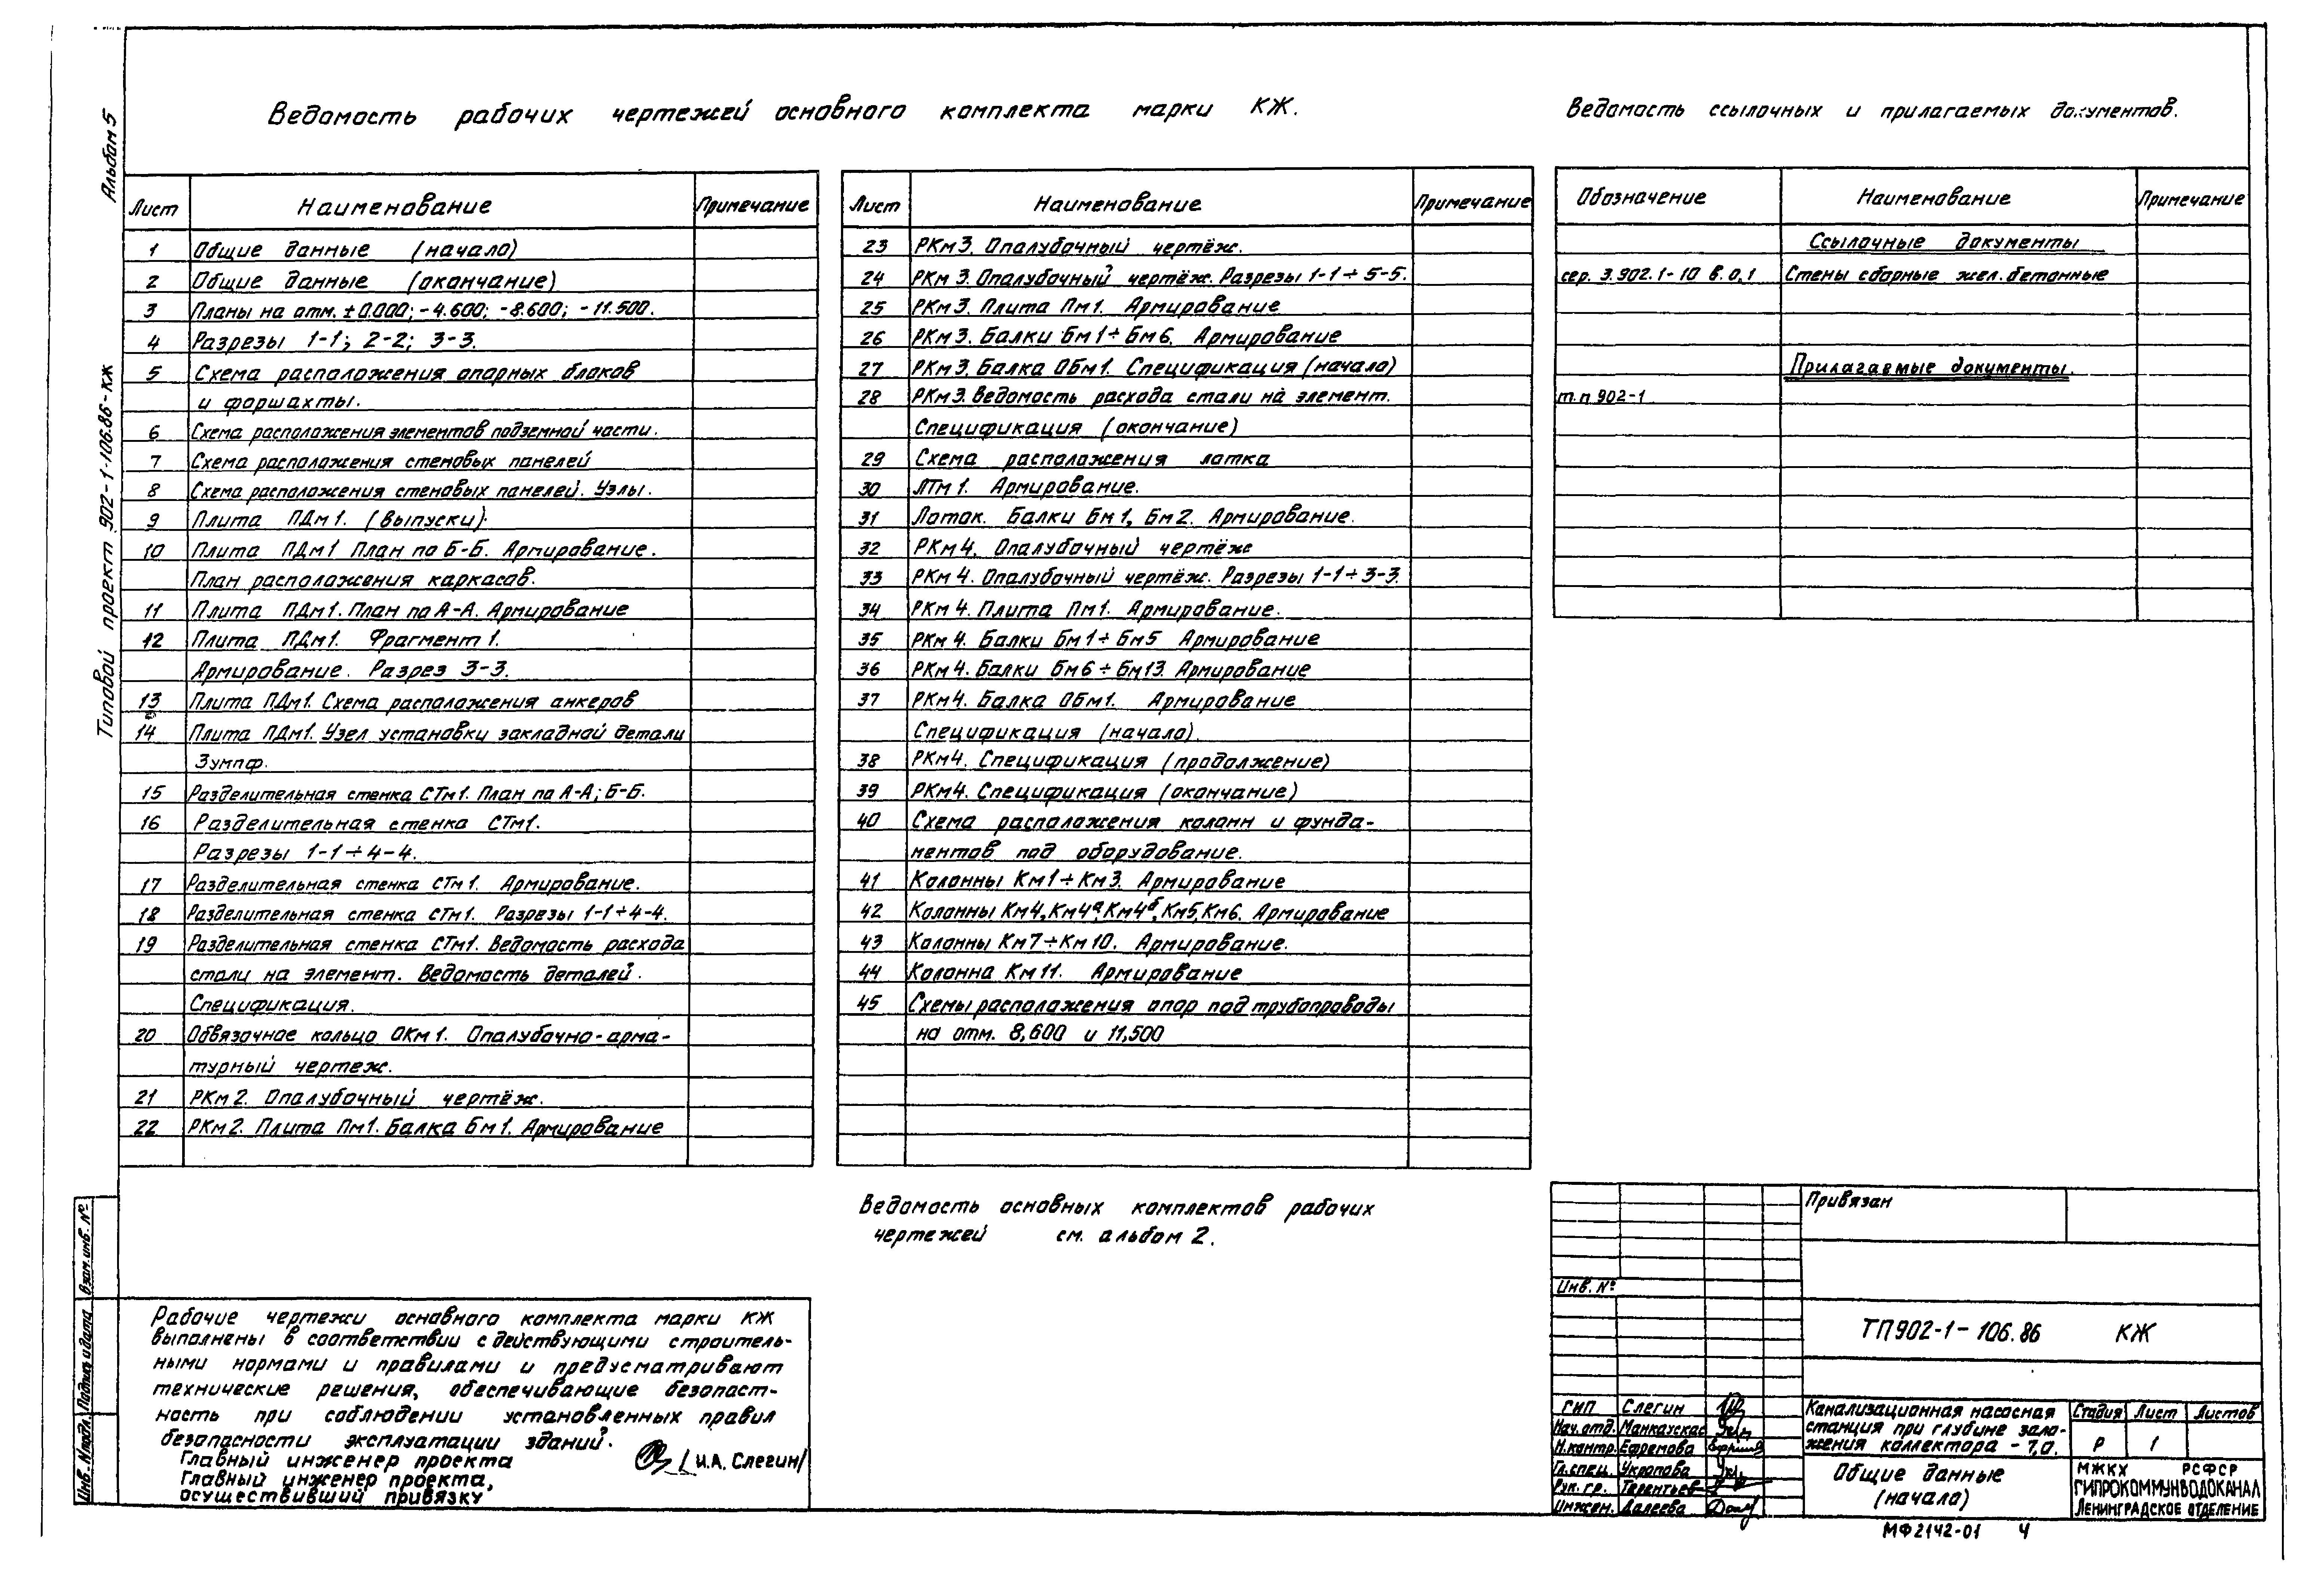 Альбом 5
Типовой проект 902-1-106.86-КЖ
Ведомость рабочих чертежей основного комплекта марки КЖ.
Лист Наименование Примечание
1 Общие данные (начало)
2 Общие данные (окончание)
3 Планы на отм. ±0.000; -4.600; -8.600; -11.500.
4 Разрезы 1-1; 2-2; 3-3.
5 Схема расположения опорных блоков
и форшахты.
6 Схема расположения элементов подземной части.
7 Схема расположения стеновых панелей
8 Схема расположения стеновых панелей. Узлы.
9 Плита ПДм1. (выпуски).
10 Плита ПДм1 План по Б-Б. Армирование.
План расположения каркасов.
11 Плита ПДм1. План по А-А. Армирование
12 Плита ПДм1. Фрагмент 1.
Армирование. Разрез 3-3.
13 Плита ПДм1. Схема расположения анкеров
14 Плита ПДм1. Узел установки закладной детали
Зумпф.
15 Разделительная стенка СТм1. План по А-А; Б-Б.
16 Разделительная стенка СТм1.
Разрезы 1-1÷4-4.
17 Разделительная стенка СТм1. Армирование.
18 Разделительная стенка СТм1. Разрезы 1-1÷4-4.
19 Разделительная стенка СТм1. Ведомость расхода
стали на элемент. Ведомость деталей.
Спецификация.
20 Обвязочное кольцо ОКм1. Опалубочно-арма-
турный чертеж.
21 РКм2. Опалубочный чертёж.
22 РКм2. Плита Пм1. Балка Бм1. Армирование
Лист Наименование Примечание
23 РКм3. Опалубочный чертёж.
24 РКм3. Опалубочный чертёж. Разрезы 1-1÷5-5.
25 РКм3. Плита Пм1. Армирование
26 РКм3. Балки Бм1÷Бм6. Армирование
27 РКм3. Балка ОБм1. Спецификация (начало)
28 РКм3. Ведомость расхода стали на элемент.
Спецификация (окончание)
29 Схема расположения лотка
30 ЛТм1. Армирование.
31 Лоток. Балки Бм1, Бм2. Армирование.
32 РКм4. Опалубочный чертёж
33 РКм4. Опалубочный чертёж. Разрезы 1-1÷3-3.
34 РКм4. Плита Пм1. Армирование.
35 РКм4. Балки Бм1÷Бм5 Армирование
36 РКм4. Балки Бм6÷Бм13. Армирование
37 РКм4. Балка ОБм1. Армирование
Спецификация (начало)
38 РКм4. Спецификация (продолжение)
39 РКм4. Спецификация (окончание)
40 Схема расположения колонн и фунда-
ментов под оборудование.
41 Колонны Км1÷Км3. Армирование
42 Колонны Км4, Км4а, Км4б, Км5, Км6. Армирование
43 Колонны Км7÷Км10. Армирование.
44 Колонна Км11. Армирование
45 Схемы расположения опор под трубопроводы
на отм. 8,600 и 11,500
Ведомость ссылочных и прилагаемых документов.
Обозначение Наименование Примечание
Ссылочные документы
сер. 3.902.1-10 в.0,1 Стены сборные жел. бетонные
Прилагаемые документы.
т.п 902-1
Ведомость основных комплектов рабочих
чертежей см. альбом 2.
Рабочие чертежи основного комплекта марки КЖ
выполнены в соответствии с действующими строитель-
ными нормами и правилами и предусматривают
технические решения, обеспечивающие безопаст-
ность при соблюдении установленных правил
безопасности эксплуатации зданий.
Главный инженер проекта /И.А. Слегин/
Главный инженер проекта,
осуществивший привязку
Взам. инв. №
Подпись и дата
Инв. № подл.
Привязан
Инв. №
ТП902-1-106.86 КЖ
ГИП Слегин
Нач. отд. Манкаускас
Н.контр. Ефремова
Гл.спец. Укропова
Рук. гр. Терентьев
Инжен. Далеева
Канализационная насосная
станция при глубине зало-
жения коллектора - 7,0.
Стадия Лист Листов
Р 1
Общие данные
(начало)
МЖКХ РСФСР
ГИПРОКОММУНВОДОКАНАЛ
Ленинградское отделение
МФ2142-01 4